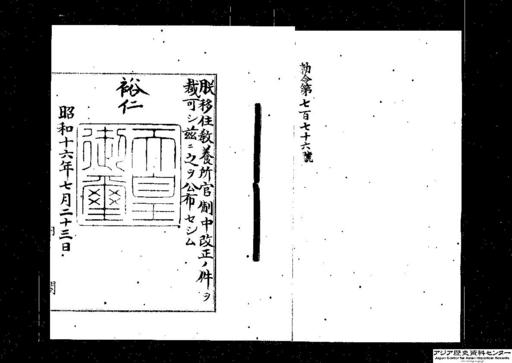 勅令第七百七十六號
朕移住教養所官制中改正ノ件ヲ
裁可シ茲ニ之ヲ公布セシム
裕仁
天皇御璽
昭和十六年七月二十三日
アジア歴史資料センター
Japan Center for Asian Historical Records